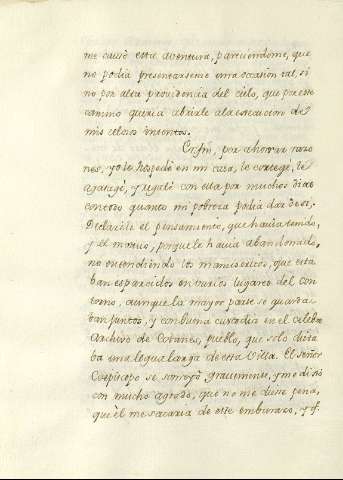 me causó esta aventura, pareciendome, que
no podia presentarseme una ocasion tal, si
no por alta providencia del cielo, que por este
camino queria abrirle ala execucion de
mis celosos intentos.
En fin, por ahorrar razo
nes, yo le hospedé en mi casa, le cortegé, le
agasagé, y regalé con ella por muchos dias
con todo quanto mi pobreza podia dar de si.
Declaréle el pensamiento, que havia tenido,
y el motivo, porque le havia abandonado,
no entendiendo los manuscritos, que esta
ban esparcidos en varios lugares del con
torno, aunque la mayor parte se guarda
ban juntos, y con buena custodia en el celebre
Archivo de Cotanes, pueblo, que solo dista
ba una legua larga de esta Villa. El Señor
Coepiscopo se sonrió gravemente, y me dixo
con mucho agrado, que no me diese pena,
que èl me sacaria de este embarazo, y q.